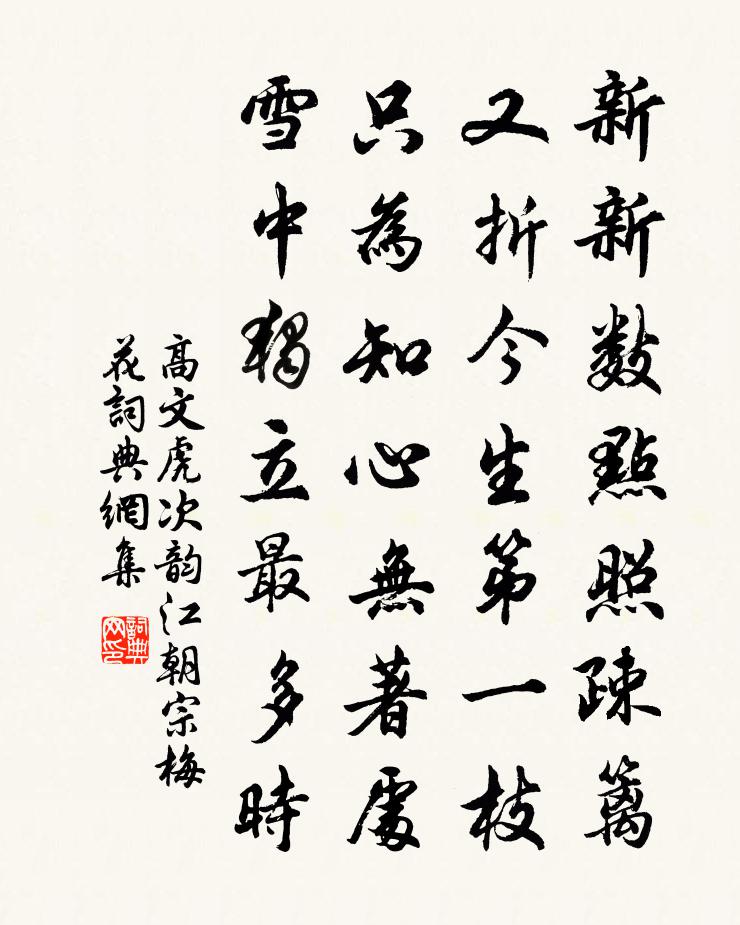 新新數點照疎籬
又折今生第一枝
只為知心無著處
雪中獨立最多時
高文虎次韵江朝宗梅
花詞典網集
詞典
网印